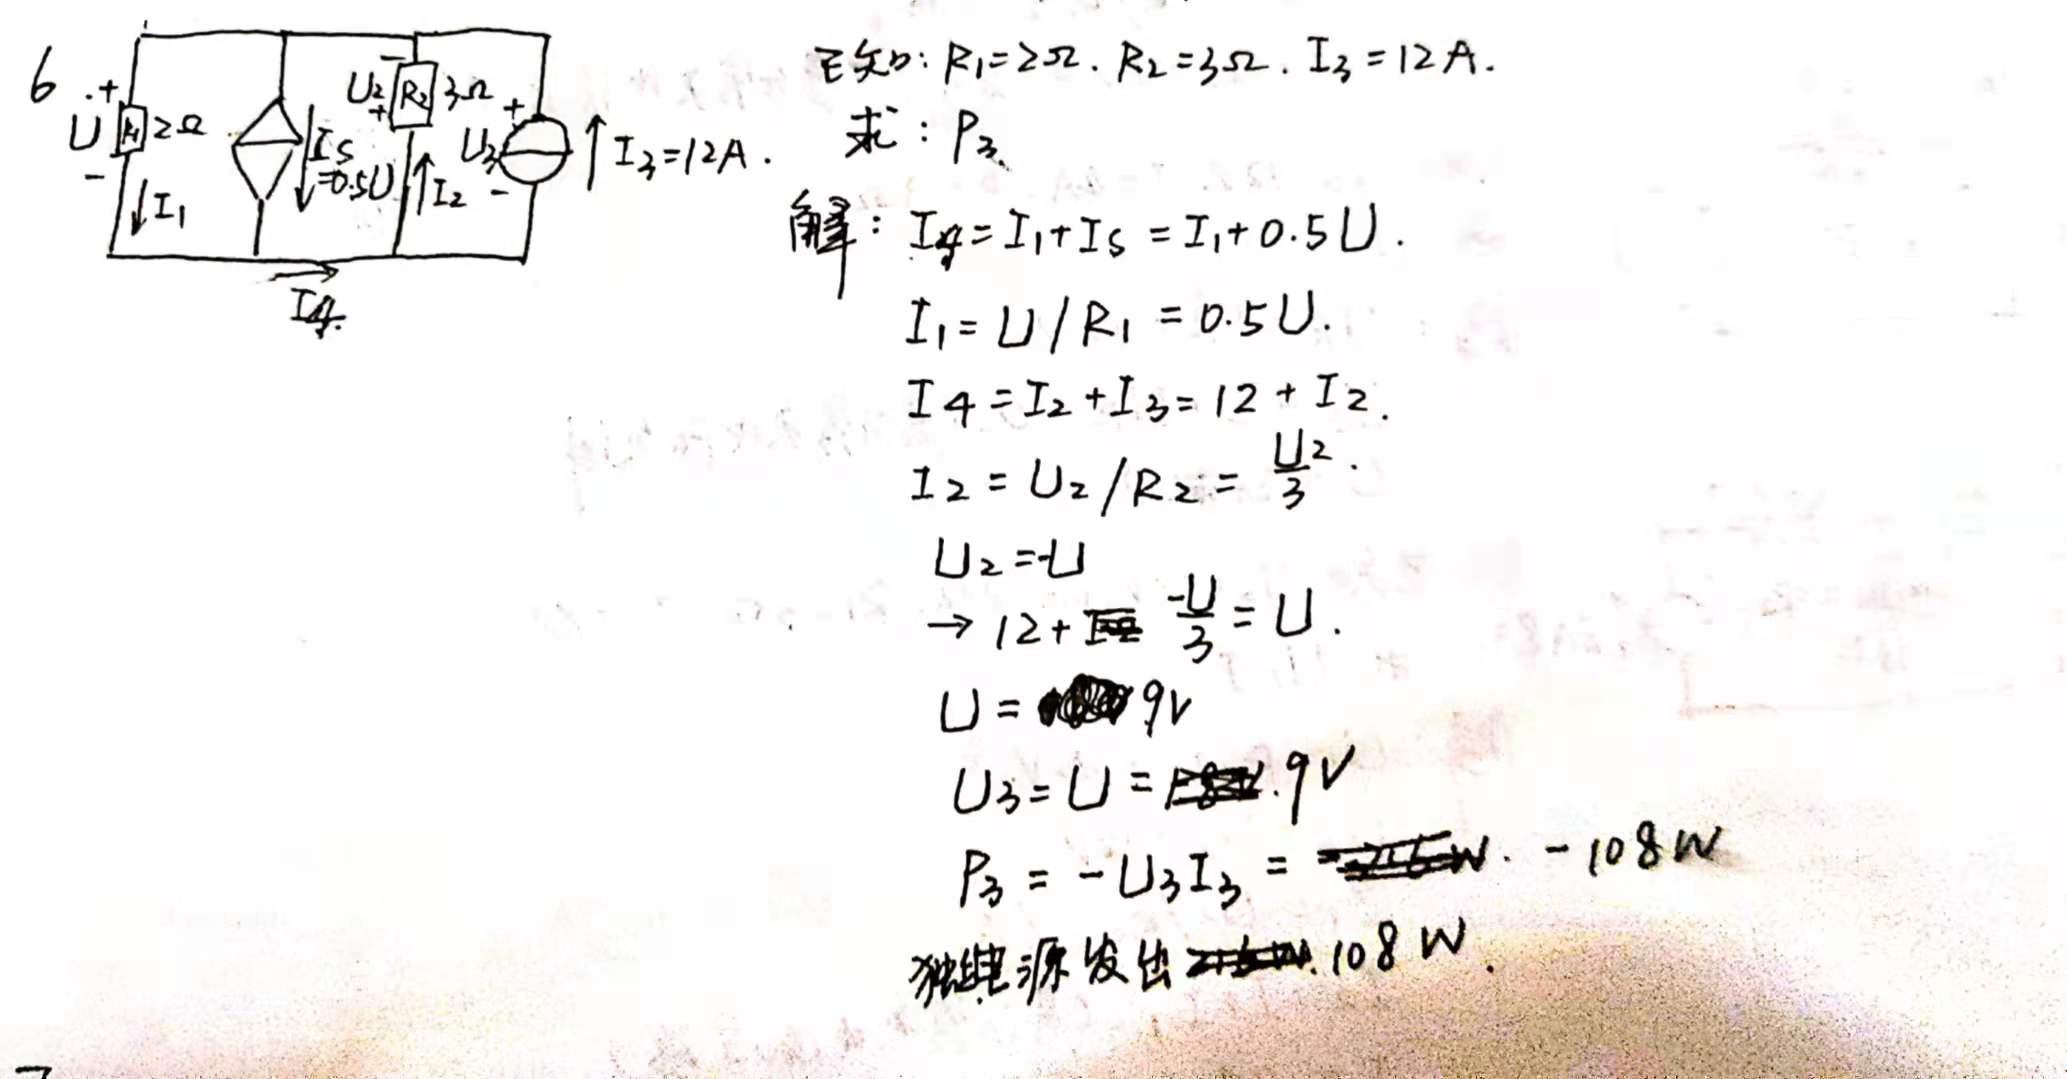 6
+
U
-
R1
2Ω
I1
Is
=0.5U
-
U2
+
R2
3Ω
I2
+
U3
-
I3=12A.
I4.
已知: R1=2Ω. R2=3Ω. I3=12A.
求: P3.
解: I4=I1+Is=I1+0.5U.
I1=U/R1=0.5U.
I4=I2+I3=12+I2.
I2=U2/R2=U2/3.
U2=-U
→ 12+ -U/3=U.
U= 9V
U3=U= .9V
P3=-U3I3= . -108W
独 源发出 .108W.